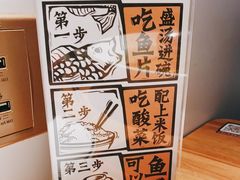 第一步
盛汤进碗
吃鱼片
第二步
配上米饭
吃酸菜
第三步
鱼
可以